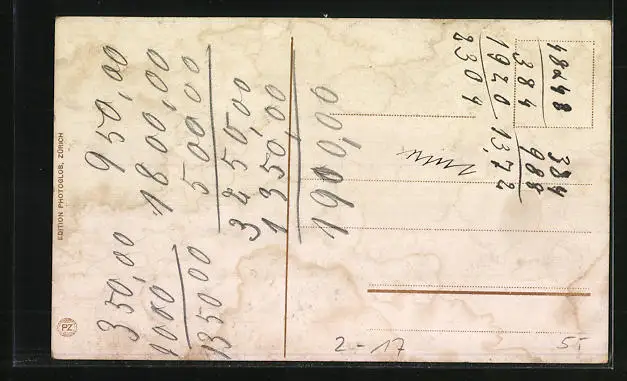 EDITION PHOTOGLOB, ZÜRICH
PZ
950,00
1800,00
500 00
3250,00
1350,00
1900,00
350,00
1000
1350 00
48x48
384
1920
2304
384
988
13,72
2-17
55